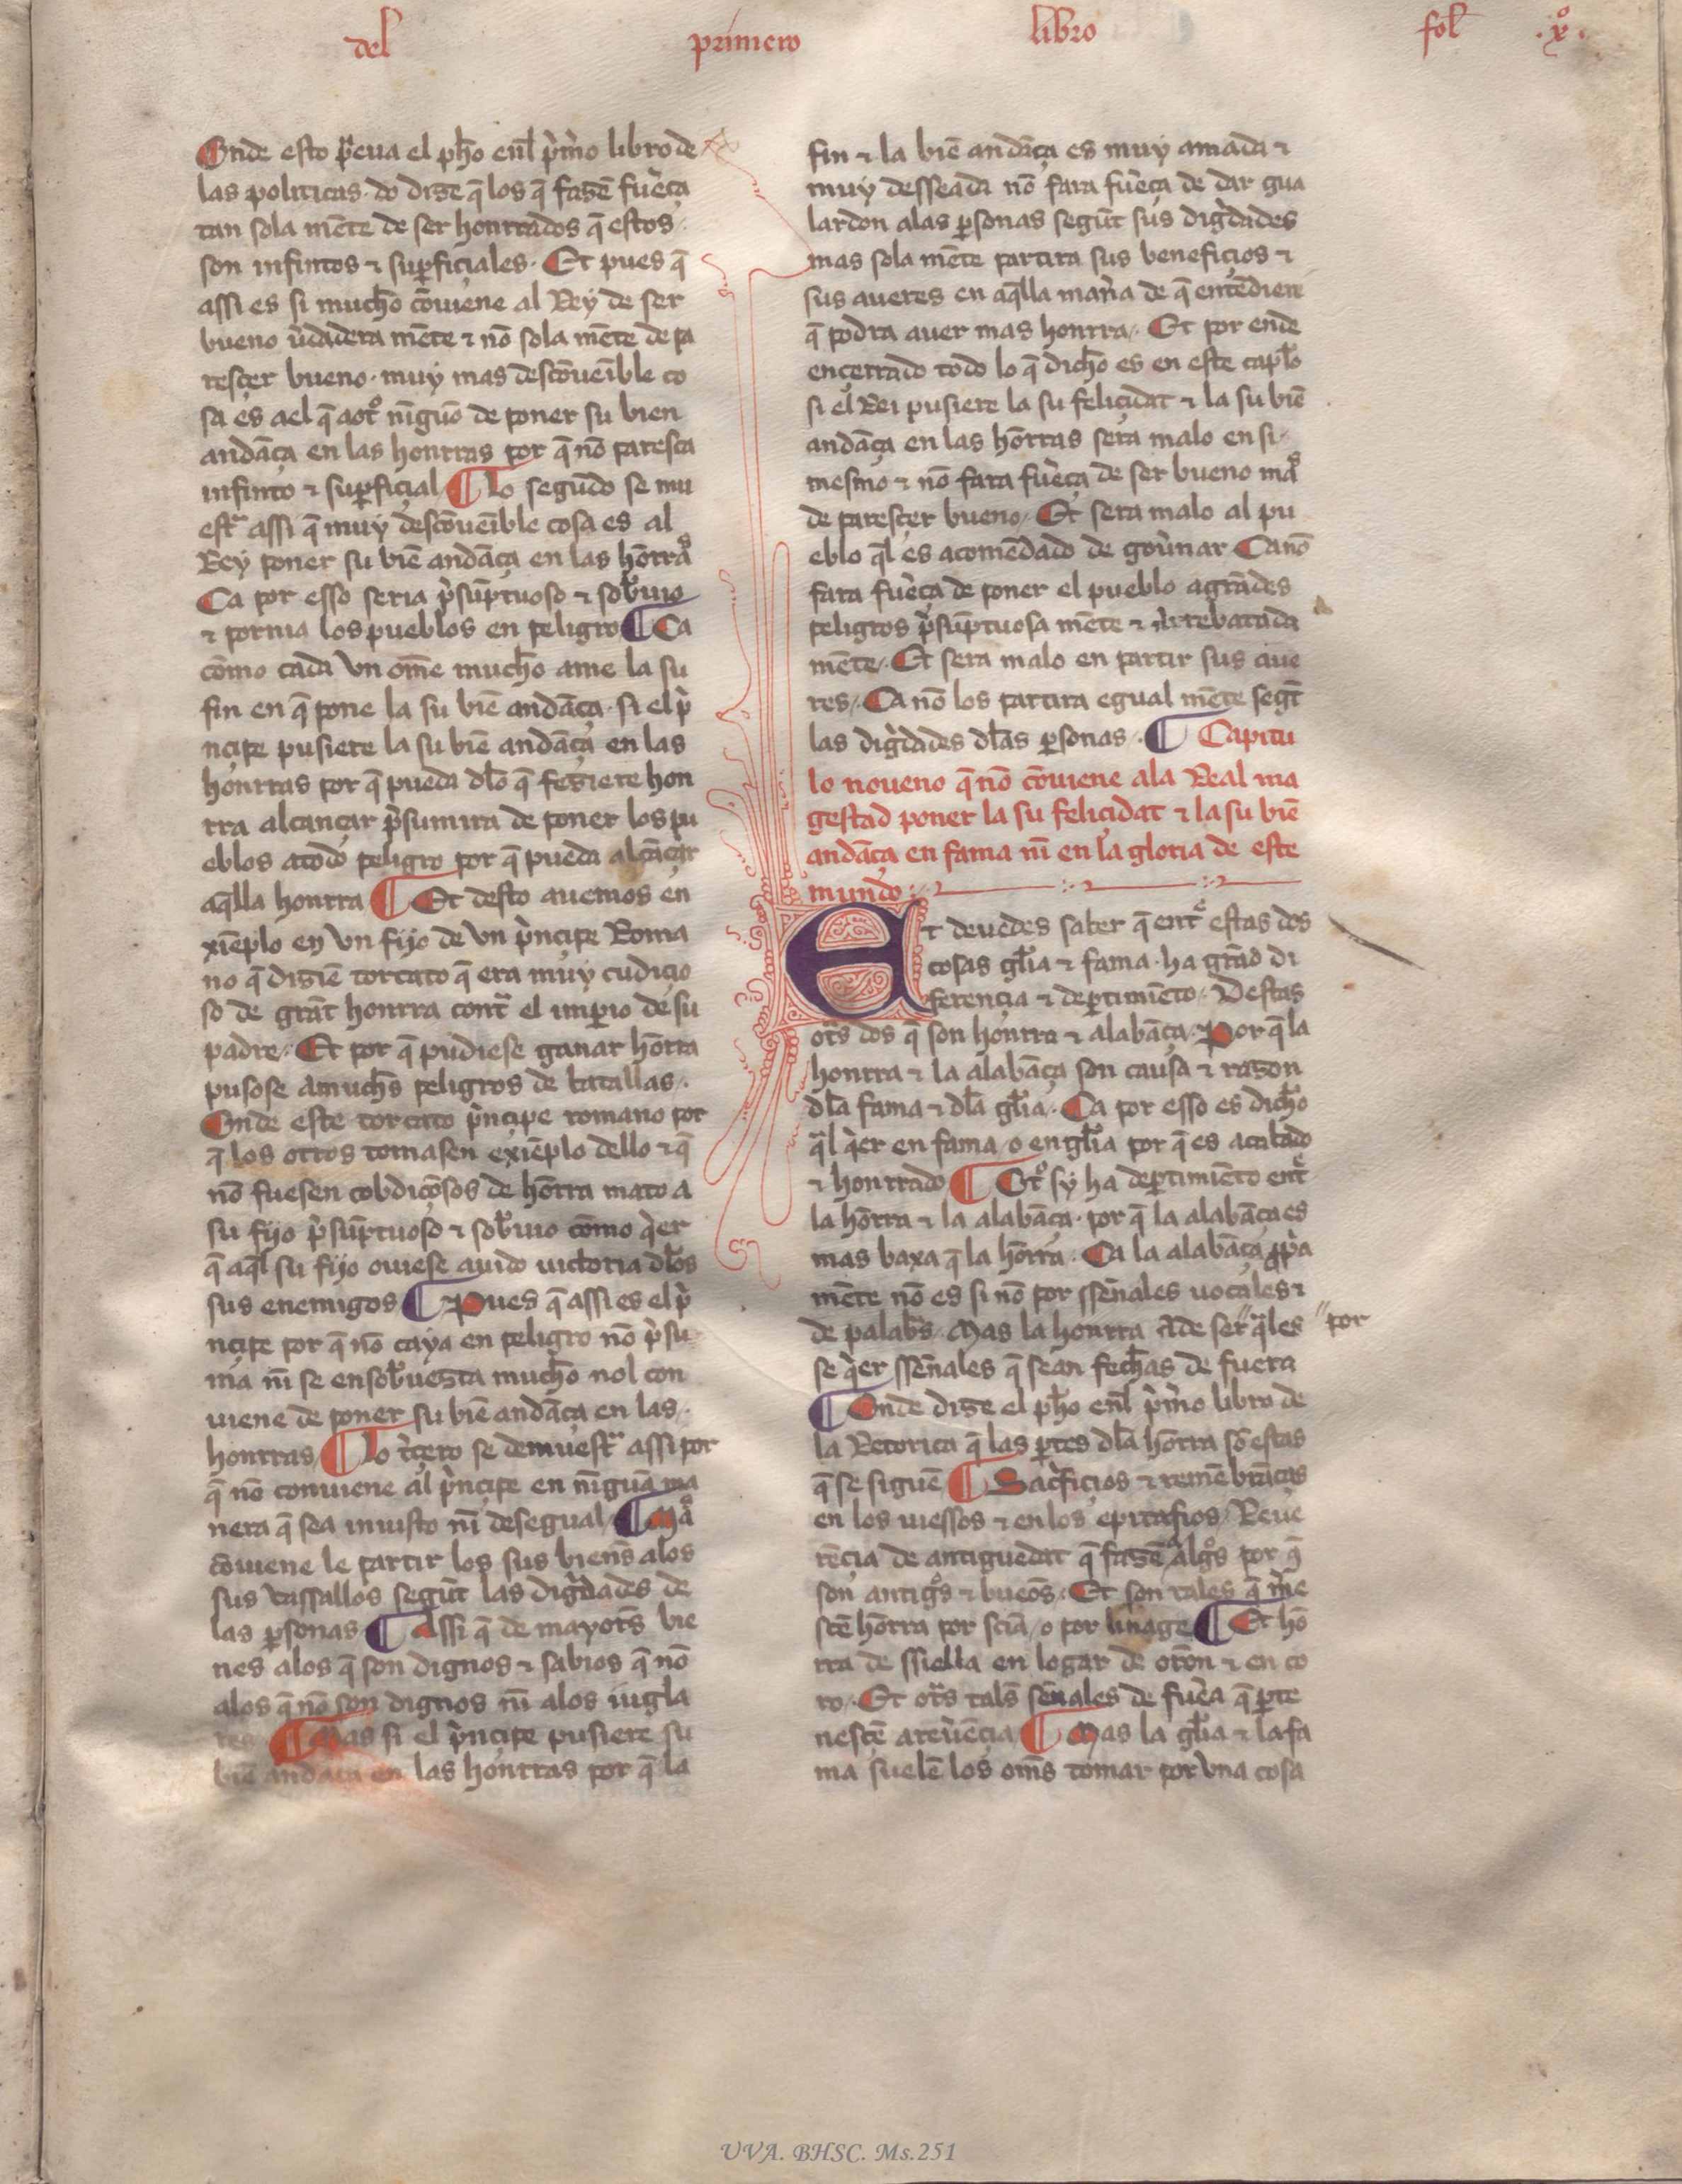 del primero libro fol .xº.
Onde esto pͥeua el ph̄o enl̄ pͥmͦo libro de
las politicas. do dize q̄ los q̄ fazē fuͥeça
tan sola mēte de ser honrrados q̄ estos.
son infintos ⁊ suꝑficiales. Et pues q̄
assi es si mucho cōuiene al Rey de ser
bueno ūdadera mēte ⁊ nō sola mēte de pa
resçer bueno. muy mas descōueīble co
sa es ael q̄ aotͦ nīguo de poner su bien
andāça en las honrras por q̄ nō paresca
infinto ⁊ suꝑficial ¶ Lo segūdo se mu
estͣ assi q̄ muy descōueīble cosa es al
Rey poner su biē andāça en las hōrraˢ
Ca por esso seria pͥsūptuoso ⁊ sob̄uio
⁊ pornia los pueblos en peligro ¶ Ca
cōmo cada vn ome mucho ame la su
fin en q̄ pone la su biē andāça. si el pͥ
nçipe pusiere la su biē andāça en las
honrras por q̄ pueda dl̄o q̄ feziere hon
rra alcançar pͥsumira de poner los pu
eblos atodo peligro por q̄ pueda alcāçar
aq̄lla honrra ¶ Et desto auemos en
xiēplo en vn fijo de vn pͥnçipe Roma
no q̄ diziē torcato q̄ era muy cudiçio
so de grāt honrra contͣ el imꝑio de su
padre. Et por q̄ pudiese ganar hōrra
pusose amuch̄s peligros de batallas.
Onde este torcato pͥnçipe romano por
q̄ los otros tomasen exiēplo dello ⁊ q̄
nō fuesen cobdiçōsos de hōrra mato a
su fijo pͥsūptuoso ⁊ sob̄uio cōmo qͥer
q̄ aql̄ su fijo ouiese auido uictoria dl̄os
sus enemigos ¶ Pues q̄ assi es el pͥ
nçipe por q̄ nō caya en peligro nō pͥsu
ma nī se ensob̄uezca mucho nol con
uiene de poner su biē andāça en las.
honrras ¶ Lo tͥçero se demuestͣ assi por
q̄ nō conuiene al pͥnçipe en nīguā ma
nera q̄ sea iniusto nī desegual ¶ Maˢ
cōuiene le partir los sus bien̄s alos
sus vassallos segūt las digͥdades de
las ꝑsonas ¶ Assi q̄ de mayor̄s bie
nes alos q̄ son dignos ⁊ sabios q̄ nō
alos q̄ nō son dignos nī alos iugla
res ¶ Mas si el pͥnçipe pusiere su
biē andāça en las honrras por q̄ la
fin ⁊ la biē andāça es muy amada ⁊
muy desseada nō fara fuͥeça de dar gua
lardon alas ꝑsonas segūt sus digͥdades
mas sola mēte partira sus beneficios ⁊
sus aueres en aq̄lla manͥa de q̄ entēdiere
q̄ podra auer mas honrra. Et por ende
ençerrado todo lo q̄ dicho es en este capl̄o
si el Rei pusiere la su feliçidat ⁊ la su biē
andāça en las hōrras sera malo en si
mesmo ⁊ nō fara fuͥeça de ser bueno maˢ
de paresçer bueno. Et sera malo al pu
eblo ql̄ es acomēdado de goūnar Ca nō
fara fuͥeça de poner el pueblo agrādes
peligros pͥsūptuosa mēte ⁊ arrebatada
mēte. Et sera malo en partir sus aue
res. Ca nō los partira egual mēte segt̄
las digͥdades dl̄as ꝑsonas. ¶ Capitu
lo noueno q̄ nō cōuiene ala Real ma
gestad poner la su feliçidat ⁊ la su biē
andāça en fama nī en la gloria de este
mundo
Et deuedes saber q̄ entͤ estas dos
cosas gl̄ia ⁊ fama. ha grād di
ferençia ⁊ deꝑtimiēto. Destas
otr̄s dos q̄ son honrra ⁊ alabāça. Por q̄ la
honrra ⁊ la alabāça son causa ⁊ razon
dl̄a fama ⁊ dl̄a gl̄ia. Ca por esso es dicho
qͣl qͥer en fama / o en gl̄ia por q̄ es acabado
⁊ honrrado ¶ Otͦ sy ha deꝑtimiēto entͤ
la hōrra ⁊ la alabāça. por q̄ la alabāça es
mas baxa q̄ la hōrra. Ca la alabāça ꝓpͥa
mēte nō es si nō por sseñales uocales ⁊
de palab̄s. Mas la honrra ade ser " qͣles " por
se qͥer sseñales q̄ sean fechas de fuera
¶ Onde dize el ph̄o enl̄ pͥmͦo libro de
la Retorica q̄ las ꝑtes dl̄a hōrra sō estas
q̄ se siguē ¶ Sacͥfiçios ⁊ remēbrāças
en los uiessos ⁊ en los epitafios / Reue
rēçia de antiguedat q̄ fazē algͦs por q̄
son antigͦs ⁊ bueōs. Et son tales q̄ mͤre
sçē hōrra por sciā / o por linage ¶ Et hō
rra de ssiella en logar de otōn ⁊ en co
ro. Et otr̄s tal̄s señales de fuͥea q̄ ꝑte
nesçē areuͥēçia ¶ Mas la gl̄ia ⁊ la fa
ma suelē los om̄s tomar por vna cosa
UVA. BHSC. Ms.251